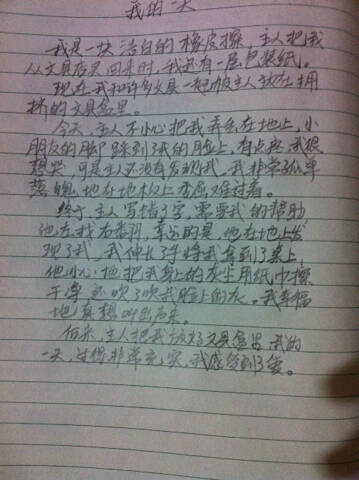 我的一天
我是一块洁白的橡皮擦，主人把我
从文具店买回来时，我还有一层包装纸。
现在我和许多文具一起被主人放在拥
挤的文具盒里。
今天，主人不小心把我弄丢在地上，小
朋友的脚踩到了我的脸上，有点疼，我很
想哭，可是主人还没有发现我，我非常孤单
落魄地在地板上委屈难过着。
终于，主人写错了字，需要我的帮助，
他在找着香料，幸运的是，他在地上发
现了我，他伸长了手将我拿到了桌上，
他小心地把我身上的灰尘用纸巾擦
干净，还吹了吹我脸上的灰。我幸福
地真想叫出声来。
后来，主人把我放好文具盒里，我的
一天，过得非常充实，我感受到了爱。